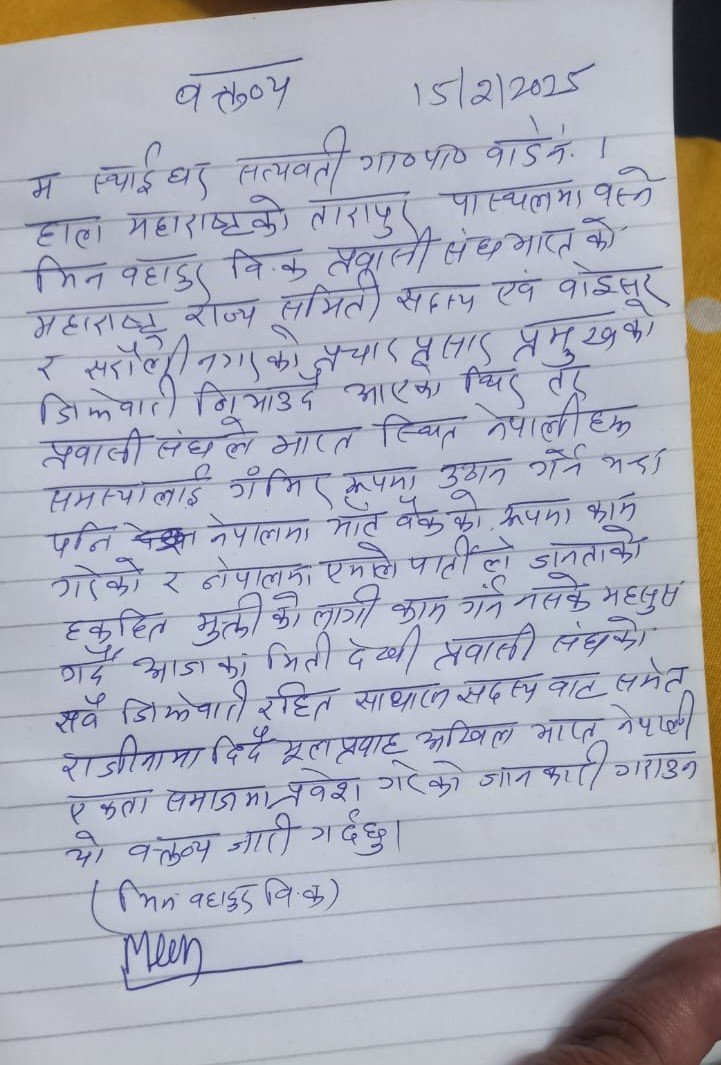 वक्तव्य 15/2/2025
म स्थाई घर सत्यवती गा०पा० वार्ड नं. 1
हाल महाराष्ट्रको तारापुर पास्थलमा वस्ने
मिन वहादुर वि.क प्रवासी संघ भारत को
महाराष्ट्र राज्य समिती सदस्य एवं वोईसर
र सरौली नगरको प्रचार प्रसार प्रमुखको
जिम्मेवारी निभाउदै आएका थिए तर
प्रवासी संघले भारत स्थित नेपाली हक
समस्यालाई गंभिर रूपमा उठान गर्न भन्दा
पनि नेपालमा भोट वैंक को रूपमा काम
गरेको र नेपालमा एमाले पार्टी ले जनताको
हकहित मुक्ती को लागी काम गर्न नसके महसुस
गर्दै आज का मिती देखी प्रवासी संघको
सवै जिम्मेवारी सहित साधारण सदस्य वाट समेत
राजीनामा दिदै मूल प्रवाह अखिल भारत नेपाली
एकता समाजमा प्रवेश गरेको जानकारी गराउन
यो वक्तव्य जारी गर्दछु।
(मिन वहादुर वि.क)
Meen